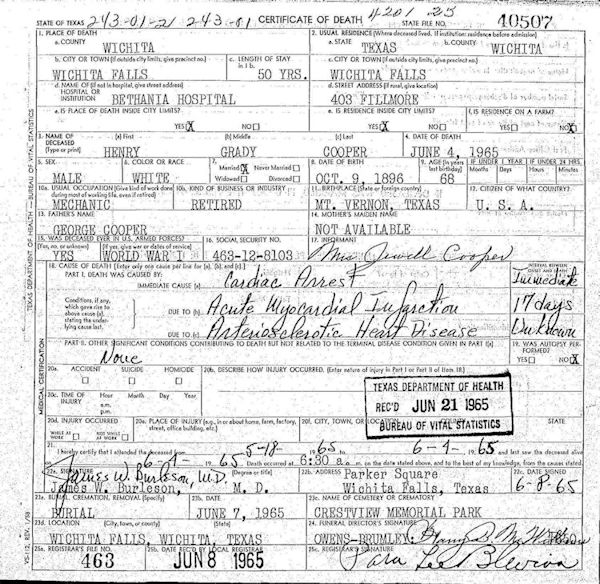 STATE OF TEXAS 243-01-21 243-01 CERTIFICATE OF DEATH 4201 .25 STATE FILE NO. 40507
1. PLACE OF DEATH 2. USUAL RESIDENCE (Where deceased lived. If institution: residence before admission)
a. COUNTY a. STATE b. COUNTY
WICHITA TEXAS WICHITA
b. CITY OR TOWN (If outside city limits, give precinct no.) c. LENGTH OF STAY in 1 b. c. CITY OR TOWN (If outside city limits, give precinct no.)
WICHITA FALLS 50 YRS. WICHITA FALLS
d. NAME OF (If not in hospital, give street address) HOSPITAL OR INSTITUTION d. STREET ADDRESS (If rural, give location)
BETHANIA HOSPITAL 403 FILLMORE
e. IS PLACE OF DEATH INSIDE CITY LIMITS? e. IS RESIDENCE INSIDE CITY LIMITS? f. IS RESIDENCE ON A FARM?
YES X NO YES X NO YES NO X
3. NAME OF DECEASED (Type or print) (a) First (b) Middle (c) Last 4. DATE OF DEATH
HENRY GRADY COOPER JUNE 4, 1965
5. SEX 6. COLOR OR RACE 7. Married X Never Married Widowed Divorced 8. DATE OF BIRTH 9. AGE (In years last birthday) IF UNDER 1 YEAR IF UNDER 24 HRS.
Months Days Hours Min.
MALE WHITE OCT. 9, 1896 68
10a. USUAL OCCUPATION (Give kind of work done during most of working life, even if retired) 10b. KIND OF BUSINESS OR INDUSTRY 11. BIRTHPLACE (State or foreign country) 12. CITIZEN OF WHAT COUNTRY?
MECHANIC RETIRED MT. VERNON, TEXAS U. S. A.
13. FATHER'S NAME 14. MOTHER'S MAIDEN NAME
GEORGE COOPER NOT AVAILABLE
15. WAS DECEASED EVER IN U.S. ARMED FORCES? 16. SOCIAL SECURITY NO. 17. INFORMANT
(Yes, no, or unknown) (If yes, give war or dates of service)
YES WORLD WAR I 463-12-8103 Mrs Jewell Cooper
18. CAUSE OF DEATH [Enter only one cause per line for (a), (b), and (c).] INTERVAL BETWEEN ONSET AND DEATH
PART I. DEATH WAS CAUSED BY:
IMMEDIATE CAUSE (a) Cardiac Arrest Immediate
Conditions, if any, which gave rise to above cause (a), stating the underlying cause last.
DUE TO (b) Acute Myocardial Infarction 17 days
DUE TO (c) Arteriosclerotic Heart Disease Unknown
PART II. OTHER SIGNIFICANT CONDITIONS CONTRIBUTING TO DEATH BUT NOT RELATED TO THE TERMINAL DISEASE CONDITION GIVEN IN PART I(a) 19. WAS AUTOPSY PERFORMED?
None YES NO X
20a. ACCIDENT SUICIDE HOMICIDE 20b. DESCRIBE HOW INJURY OCCURRED. (Enter nature of injury in Part I or Part II of item 18.)
20c. TIME OF INJURY Hour a.m. p.m. Month Day Year
TEXAS DEPARTMENT OF HEALTH
REC'D JUN 21 1965
BUREAU OF VITAL STATISTICS
20d. INJURY OCCURRED WHILE AT WORK NOT WHILE AT WORK 20e. PLACE OF INJURY (e.g., in or about home, farm, factory, street, office building, etc.) 20f. CITY, TOWN, OR LOCATION STATE
21. I hereby certify that I attended the deceased from 5-18- 1965 to 6-4- 1965 and last saw the deceased alive
6-4- 1965. Death occurred at 6:30 a.m. on the date stated above, and to the best of my knowledge, from the causes stated.
22a. SIGNATURE (Degree or title) 22b. ADDRESS 22c. DATE SIGNED
James W. Burleson, M.D. Parker Square
James W. Burleson, M. D. Wichita Falls, Texas 6-8-65
23a. BURIAL, CREMATION, REMOVAL (Specify) 23b. DATE 23c. NAME OF CEMETERY OR CREMATORY
BURIAL JUNE 7, 1965 CRESTVIEW MEMORIAL PARK
23d. LOCATION (City, town, or county) (State) 24. FUNERAL DIRECTOR'S SIGNATURE
WICHITA FALLS, WICHITA, TEXAS OWENS-BRUMLEY
25a. REGISTRAR'S FILE NO. 25b. DATE REC'D BY LOCAL REGISTRAR 25c. REGISTRAR'S SIGNATURE
463 JUN 8 1965 Sara Lee Blevins
TEXAS DEPARTMENT OF HEALTH—BUREAU OF VITAL STATISTICS
MEDICAL CERTIFICATION
VS-112 REV. 1/58